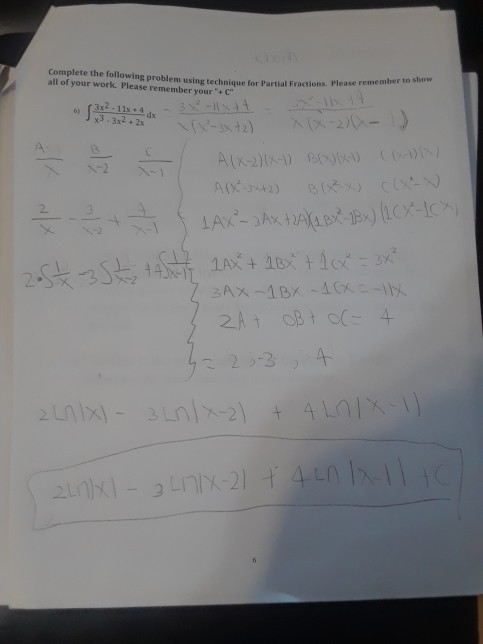 Complete the following problem using technique for Partial Fractions. Please remember to show
all of your work. Please remember your "+ C"
6) ∫ (3x² - 11x + 4)/(x³ - 3x² + 2x) dx = (3x² - 11x + 4)/(x(x² - 3x + 2)) = /(x(x - 2)(x - 1))
A/x B/(x-2) C/(x-1)
A(x-2)(x-1) B(x)(x-1)
A(x²-3x+2) B(x²-x)
2/x - 3/(x-2) + 4/(x-1)
1Ax² - 3Ax + 2A)(1Bx² - 1Bx)(1Cx² - 1Cx)
2·∫1/x - 3∫1/(x-2) + 4∫1/(x-1)
1Ax² + 1Bx² + 1Cx² = 3x²
3Ax - 1Bx - 1Cx = -11x
2A + 0B + 0C = 4
= 2, -3, 4
2Ln|x| - 3Ln|x-2| + 4Ln|x-1|
2Ln|x| - 3Ln|x-2| + 4Ln|x-1| + C
6